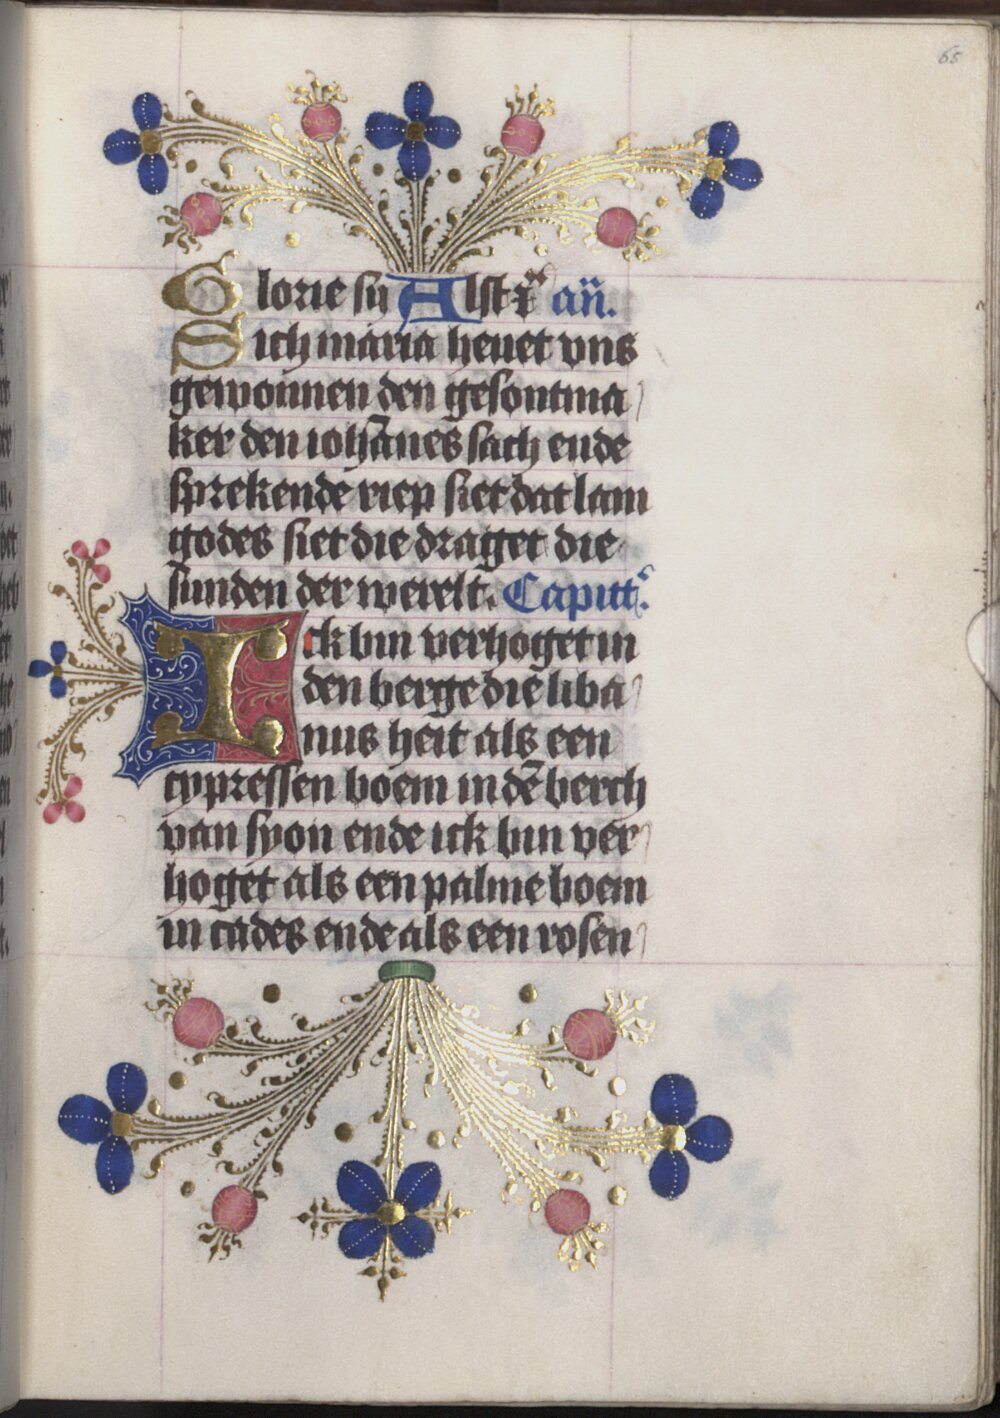 65
Glorie sij Alst x an̄.
Sich maria heuet vns
gewonnen den gesontma
ker den iohānes sach ende
sprekende riep siet dat lam
godes siet die draget die
sunden der werelt. Capitt.
Ick bin verhoget in
den berge die liba
nus heit als een
cypressen boem in dē berch
van syon ende ick bin ver
hoget als een palme boem
in cades ende als een rosen